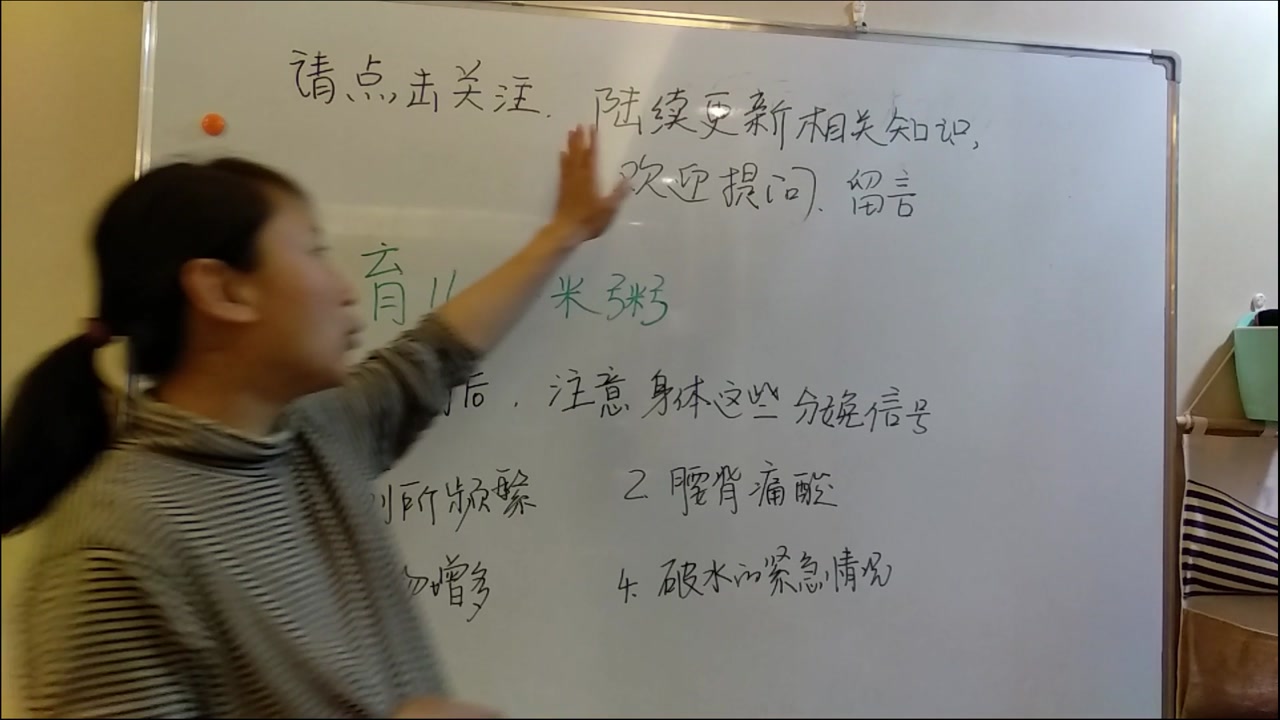 请点击关注. 陆续更新相关知识,
欢迎提问、留言
育儿 米粥
后, 注意身体这些分娩信号
厕所频繁 2. 腰背痛酸
物增多 4. 破水的紧急情况